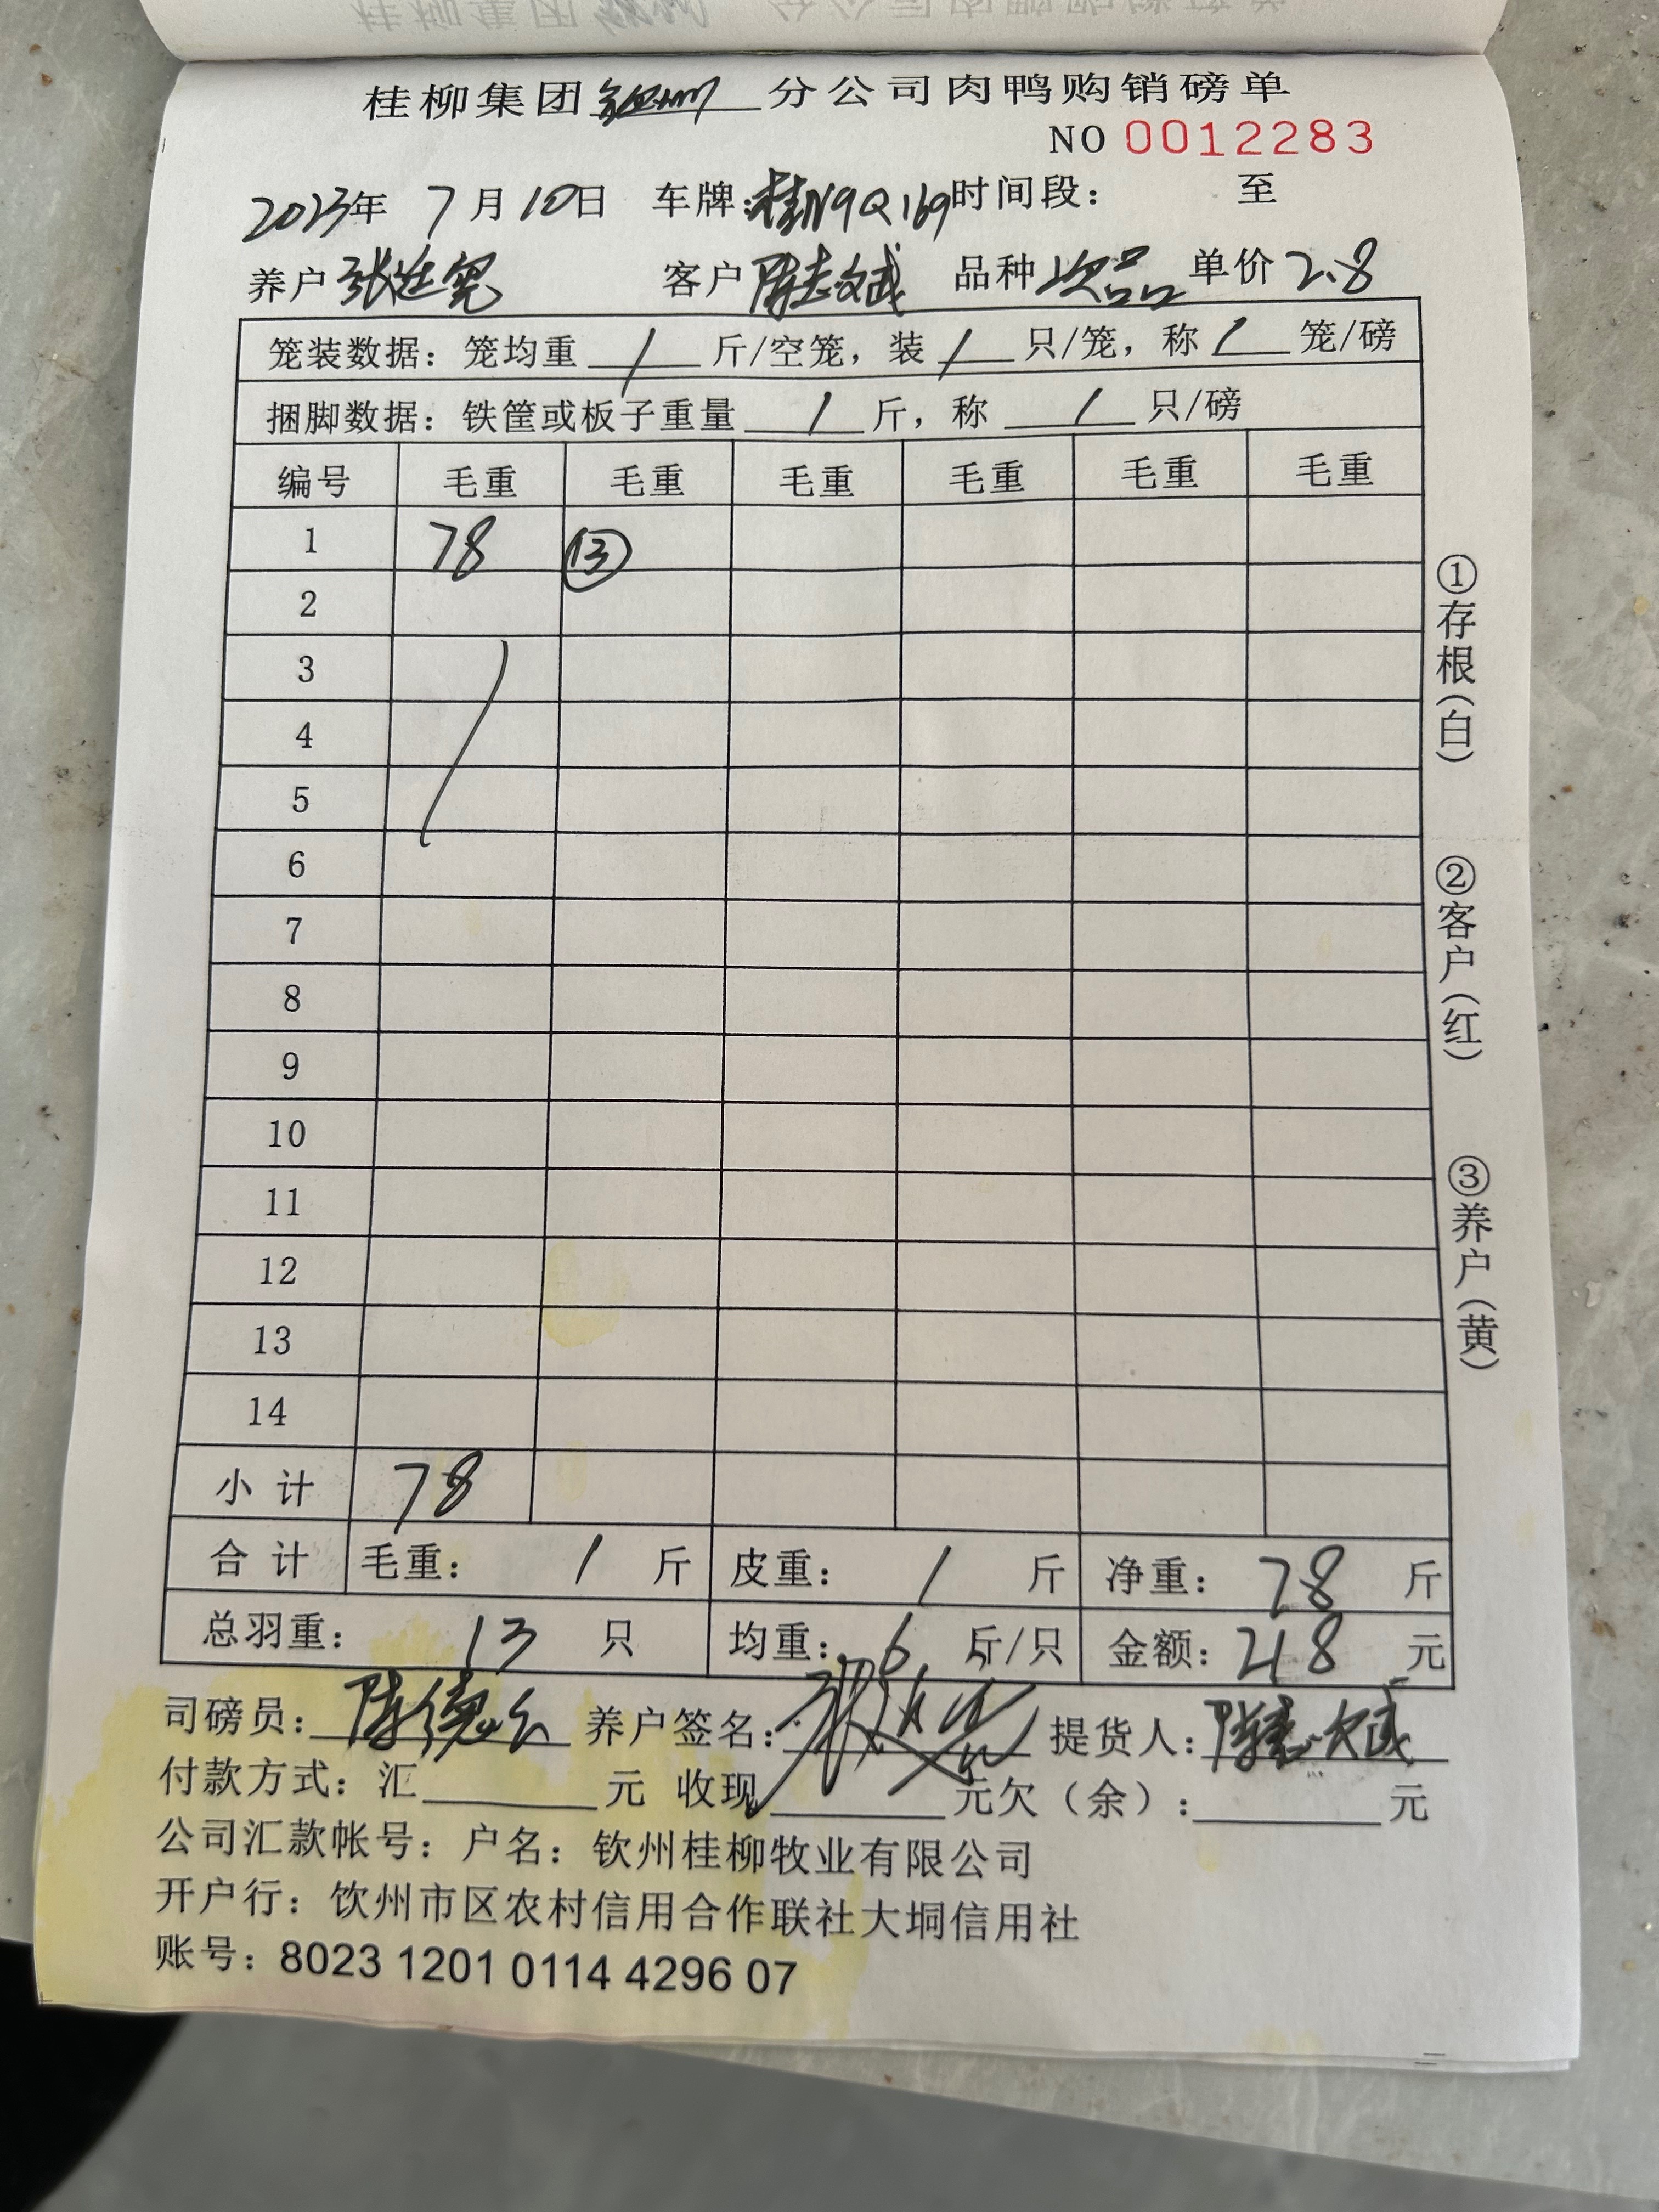 桂柳集团钦州分公司肉鸭购销磅单
NO 0012283
2023年 7月10日 车牌:桂N9Q169 时间段: 至
养户 张廷宽 客户 陈志斌 品种 次品 单价 2.8
笼装数据: 笼均重 / 斤/空笼, 装 / 只/笼, 称 / 笼/磅
捆脚数据: 铁筐或板子重量 / 斤, 称 / 只/磅
编号 毛重 毛重 毛重 毛重 毛重 毛重
1 78 ⑬
2
3
4
5
6
7
8
9
10
11
12
13
14
小计 78
合计 毛重: / 斤 皮重: / 斤 净重: 78 斤
总羽重: 13 只 均重: 6 斤/只 金额: 218 元
司磅员: 养户签名: 提货人: 陈志斌
付款方式: 汇 元 收现 元欠(余): 元
公司汇款帐号: 户名: 钦州桂柳牧业有限公司
开户行: 饮州市区农村信用合作联社大垌信用社
账号: 8023 1201 0114 4296 07
①存根(白)
②客户(红)
③养户(黄)